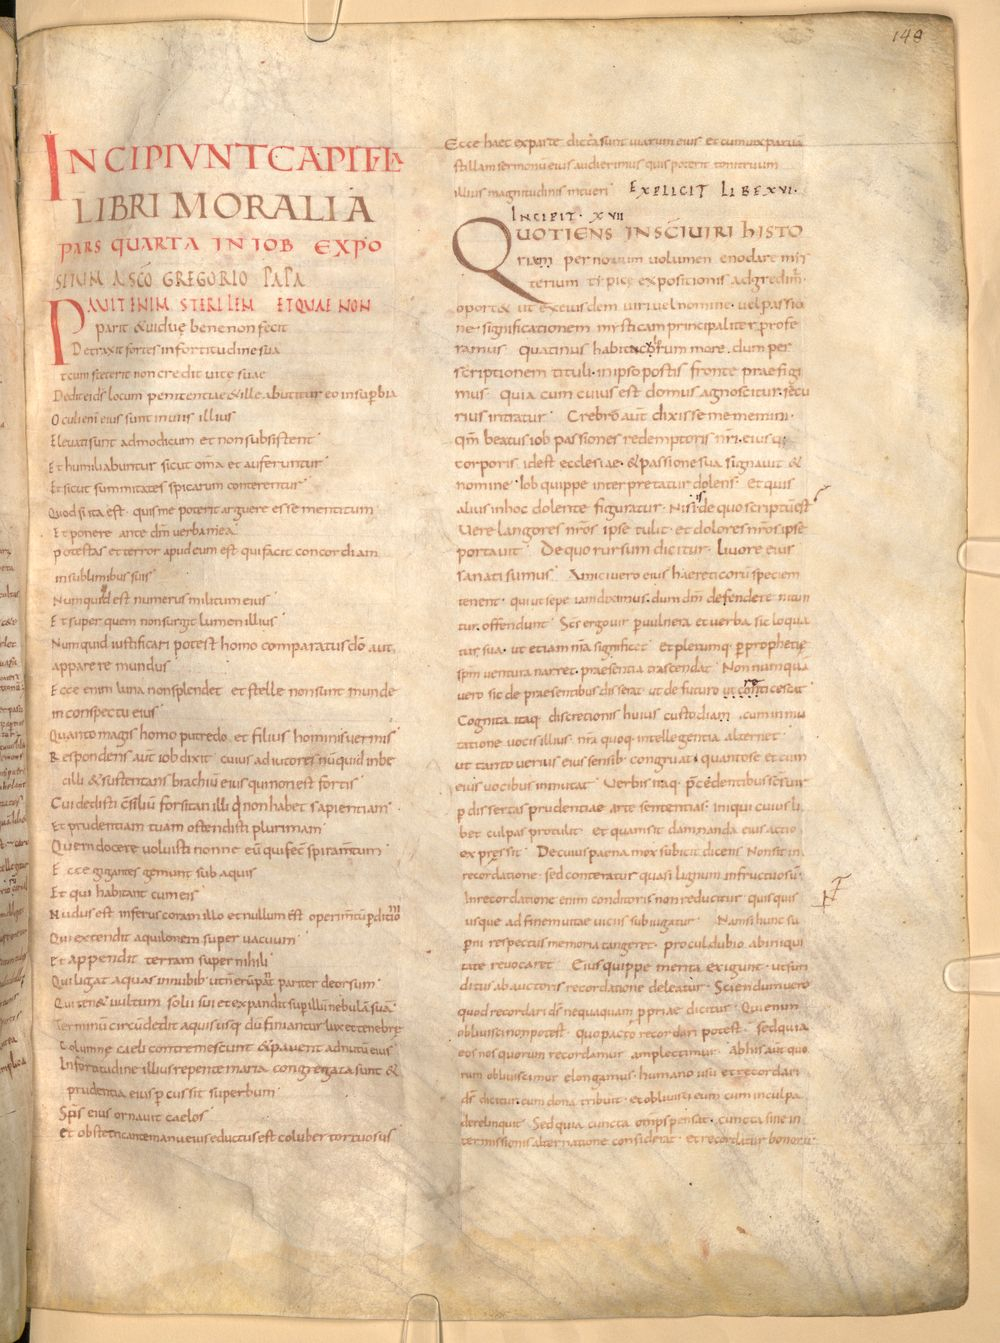 149
INCIPIVNT CAPITLA
LIBRI MORALIA
PARS QUARTA IN IOB EXPO
SITUM A SCO GREGORIO PAPA
PAVIT ENIM STERILEM ET QUAE NON
parit & uiduę bene non fecit
Detraxit fortes in fortitudine sua
& cum steterit non credit uitę suae
Dedit ei ds locum penitentiae & ille abutitur eo in superbia
Oculi enim eius sunt in uiis illius
Eleuati sunt ad modicum et non subsistent
Et humiliabuntur sicut oma et auferuntur
Et sicut summitates spicarum conterentur
Quod si ita est quis me poterit arguere esse mentitum
Et ponere ante dm uerba mea
Potestas et terror apud eum est qui facit concordiam
in sublimibus suis
Numquid est numerus militum eius
Et super quem non surgit lumen illius
Numquid iustificari potest homo comparatus dō aut
apparere mundus
Ecce enim luna non splendet et stelle non sunt munde
in conspectu eius
Quanto magis homo putredo et filius hominis uermis
Respondens aut iob dixit cuius adiutor es nūquid inbe
cilli & sustentans brachiū eius qui non est fortis
Cui dedisti csiliū forsitan illi q non habet sapientiam
Et prudentiam tuam ostendisti plurimam
Quem docere uoluisti nonne eū qui fec spiramtum
Ecce gigantes gemunt sub aquis
Et qui habitant cum eis
Nudus est inferus coram illo et nullum est operimtū pditionī
Qui extendit aquilonem super uacuum
Et appendit terram super nihili
Qui ligat aquas in nubib ut nerūpat pariter deorsum
Qui ten& uultum solii sui et expandit sup illū nebulā suā
Terminū circūdedit aquis usq dū finiantur lux et tenebrę
Columne caeli contremescunt & pauent ad nutū eius
In fortitudine illius repente maria congregata sunt &
prudentia eius pcussit superbum
Sps eius ornauit caelos
Et obstetricante manu eius eductus est coluber tortuosus
Ecce haec ex parte dicta sunt uiarum eius et cum uix paruā
stillam sermonū eius audierimus quis poterit tonitruum
illius magnitudinis intueri EXPLICIT LIBE XVI.
INCIPIT XVII
QUOTIENS IN SCI UIRI HISTO
riam per nouum uolumen enodare mys
terium typicę expositionis adgredimr
oport& ut ex eiusdem uiri uel nomine uel passio
ne significationem mysticam principaliter profe
ramus Quatinus habitaculorum more dum per
scriptionem tituli in ipso postis fronte praefigi
mus Quia cum cuius est domus agnoscitur secu
rius intratur Crebro aut dixisse me memini
qm beatus iob passiones redemptoris nri eiusq
corporis id est ecclesiae & passione sua signauit &
nomine Iob quippe interpretatur dolens Et quis
alius in hoc dolente figuratur Nisi is de quo scriptū est
Vere langores nros ipse tulit et dolores nros ipse
portauit De quo rursum dicitur Liuore eius
sanati sumus Amici uero eius haereticorū speciem
tenent qui ut sepe iam diximus dum dm defendere nitun
tur offendunt Scs ergo uir p uulnera et uerba sic loqua
tur sua ut etiam nra significet et plerumq p prophetię
spm uentura narret praesentia trascendat Non numqua
uero sic de praesentibus disserat ut de futuro
Cognita itaq discretionis huius custodiam cum in mu
tatione uocis illius nra quoq intellegentia alternet
ut tanto uerius eius sensib congruat quanto se et cum
eius uocibus inmutat Verbis itaq pcedentibus scs uir
p dissertas prudentiae arte sententias iniqui cuius li
bet culpas protulit et quam sit damnanda eius actio
expressit De cuius paena mox subicit dicens Non sit in
recordatione sed conteratur quasi lignum infructuosū
In recordatione enim conditoris non reducitur quisquis
usque ad finem uitae uitiis subiugatur Nam si hunc su
pni respectus memoria tangeret proculdubio ab iniqui
tate reuocaret Eius quippe merita exigunt ut sum
ditus ab auctoris recordatione deleatur Sciendum uero
quod recordari ds nequaquam ppriae dicitur Qui enim
obliuisci non potest quo pacto recordari potest sed quia
eos nos quorum recordamur amplectimur Ab his aut quo
rum obliuiscimur elongamus humano usu et recordari
ds dicitur cum dona tribuit et obliuisci eum cum in culpa
derelinquit Sed quia cuncta omps pensat cuncta sine in
termissionis alternatione considerat et recordatur bonorū